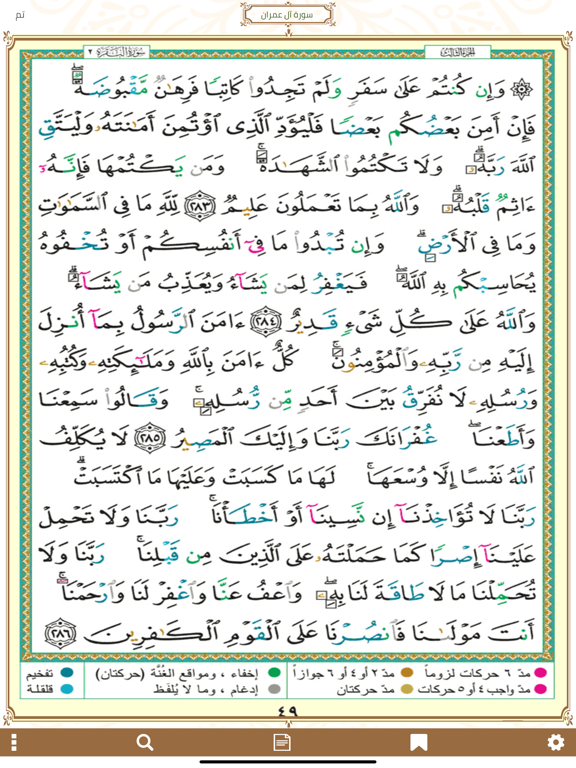 تم
سورة آل عمران
الجزء الثالث
سورة البقرة ٢
۞ وَإِن كُنتُمْ عَلَىٰ سَفَرٍ وَلَمْ تَجِدُوا۟ كَاتِبًا فَرِهَـٰنٌ مَّقْبُوضَةٌ ۖ
فَإِنْ أَمِنَ بَعْضُكُم بَعْضًا فَلْيُؤَدِّ ٱلَّذِى ٱؤْتُمِنَ أَمَـٰنَتَهُۥ وَلْيَتَّقِ
ٱللَّهَ رَبَّهُۥ ۗ وَلَا تَكْتُمُوا۟ ٱلشَّهَـٰدَةَ ۚ وَمَن يَكْتُمْهَا فَإِنَّهُۥٓ
ءَاثِمٌ قَلْبُهُۥ ۗ وَٱللَّهُ بِمَا تَعْمَلُونَ عَلِيمٌ ﴿٢٨٣﴾ لِّلَّهِ مَا فِى ٱلسَّمَـٰوَٰتِ
وَمَا فِى ٱلْأَرْضِ ۗ وَإِن تُبْدُوا۟ مَا فِىٓ أَنفُسِكُمْ أَوْ تُخْفُوهُ
يُحَاسِبْكُم بِهِ ٱللَّهُ ۖ فَيَغْفِرُ لِمَن يَشَآءُ وَيُعَذِّبُ مَن يَشَآءُ ۗ
وَٱللَّهُ عَلَىٰ كُلِّ شَىْءٍ قَدِيرٌ ﴿٢٨٤﴾ ءَامَنَ ٱلرَّسُولُ بِمَآ أُنزِلَ
إِلَيْهِ مِن رَّبِّهِۦ وَٱلْمُؤْمِنُونَ ۚ كُلٌّ ءَامَنَ بِٱللَّهِ وَمَلَـٰٓئِكَتِهِۦ وَكُتُبِهِۦ
وَرُسُلِهِۦ لَا نُفَرِّقُ بَيْنَ أَحَدٍ مِّن رُّسُلِهِۦ ۚ وَقَالُوا۟ سَمِعْنَا
وَأَطَعْنَا ۖ غُفْرَانَكَ رَبَّنَا وَإِلَيْكَ ٱلْمَصِيرُ ﴿٢٨٥﴾ لَا يُكَلِّفُ
ٱللَّهُ نَفْسًا إِلَّا وُسْعَهَا ۚ لَهَا مَا كَسَبَتْ وَعَلَيْهَا مَا ٱكْتَسَبَتْ ۗ
رَبَّنَا لَا تُؤَاخِذْنَآ إِن نَّسِينَآ أَوْ أَخْطَأْنَا ۚ رَبَّنَا وَلَا تَحْمِلْ
عَلَيْنَآ إِصْرًا كَمَا حَمَلْتَهُۥ عَلَى ٱلَّذِينَ مِن قَبْلِنَا ۚ رَبَّنَا وَلَا
تُحَمِّلْنَا مَا لَا طَاقَةَ لَنَا بِهِۦ ۖ وَٱعْفُ عَنَّا وَٱغْفِرْ لَنَا وَٱرْحَمْنَآ ۚ
أَنتَ مَوْلَىٰنَا فَٱنصُرْنَا عَلَى ٱلْقَوْمِ ٱلْكَـٰفِرِينَ ﴿٢٨٦﴾
مدّ ٦ حركات لزوماً مدّ ٢ أو ٤ أو ٦ جوازاً إخفاء ، ومواقع الغُنَّة (حركتان) تفخيم
مدّ واجب ٤ أو ٥ حركات مدّ حركتان إدغام ، وما لا يُلفَظ قلقلة
٤٩